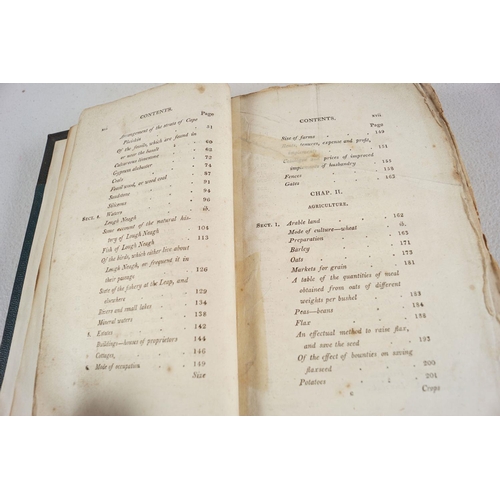 CONTENTS.
Page
Arrangement of the strata of Cape
Pleiskin 51
Of the fossils, which are found in
or near the basalt 60
Calcareous limestone 62
Gypsum alabaster 73
Coals 74
Fossil wood, or wood coal 87
Sandstone 91
Siliceous 94
SECT. 4. Waters 96
Lough Neagh ib.
Some account of the natural his-
tory of Lough Neagh 104
Fish of Lough Neagh 113
Of the birds, which either live about
Lough Neagh, or frequent it in
their passage 126
State of the fishery at the Leap, and
elsewhere 129
Rivers and small lakes 134
Mineral waters 138
Estates 142
Buildings—houses of proprietors 144
Cottages, 146
Mode of occupation 149
Size
CONTENTS.
Page
Size of farms 150
tenures, expence and profit,
151
prices of improved
implements of husbandry
Fences 158
Gates 163
CHAP. II.
AGRICULTURE.
SECT. 1. Arable land 162
Mode of culture—wheat ib.
Preparation 163
Barley 171
Oats 173
Markets for grain 181
A table of the quantities of meal
obtained from oats of different
weights per bushel 183
Peas—beans 184
Flax 188
An effectual method to raise flax,
and save the seed 193
Of the effect of bounties on sowing
flaxseed 200
Potatoes 204
Crops